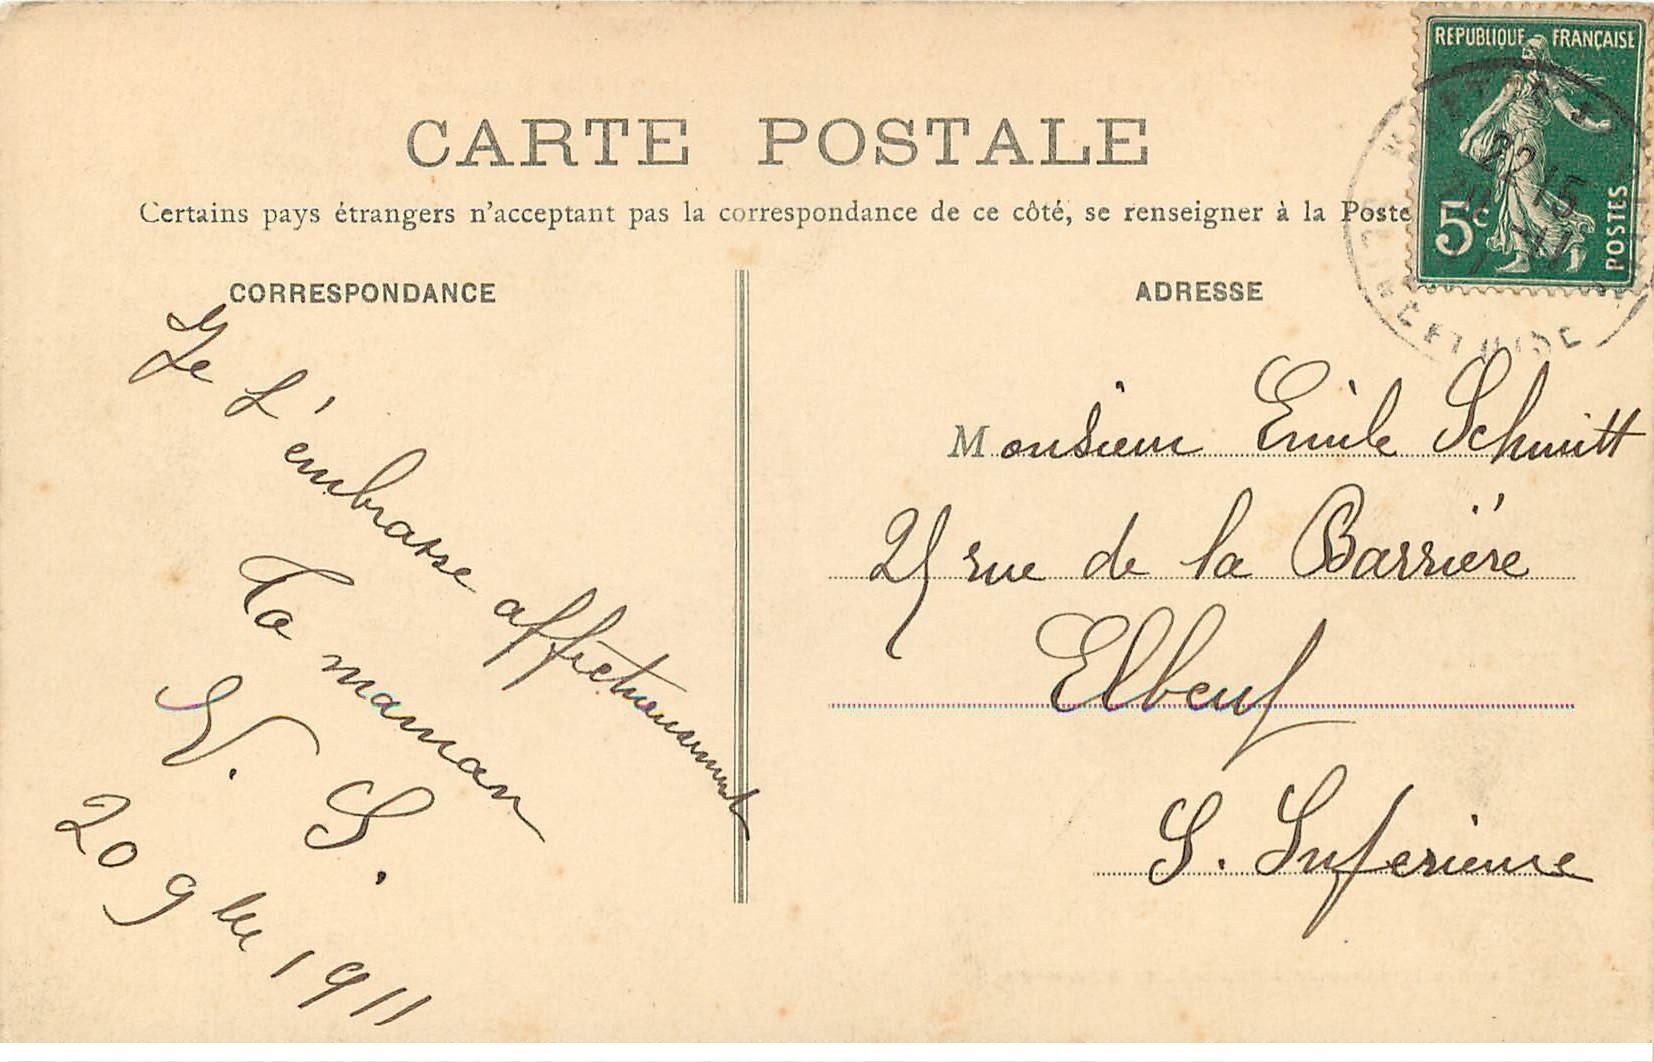 REPUBLIQUE FRANÇAISE
5c
POSTES
22 15
CARTE POSTALE
Certains pays étrangers n'acceptant pas la correspondance de ce côté, se renseigner à la Poste
CORRESPONDANCE
Je t'embrasse affectueusement
Ta maman
V. S.
20 9bre 1911
ADRESSE
Monsieur Emile Schmitt
25 rue de la Barrière
Elbeuf
S. Inferieure